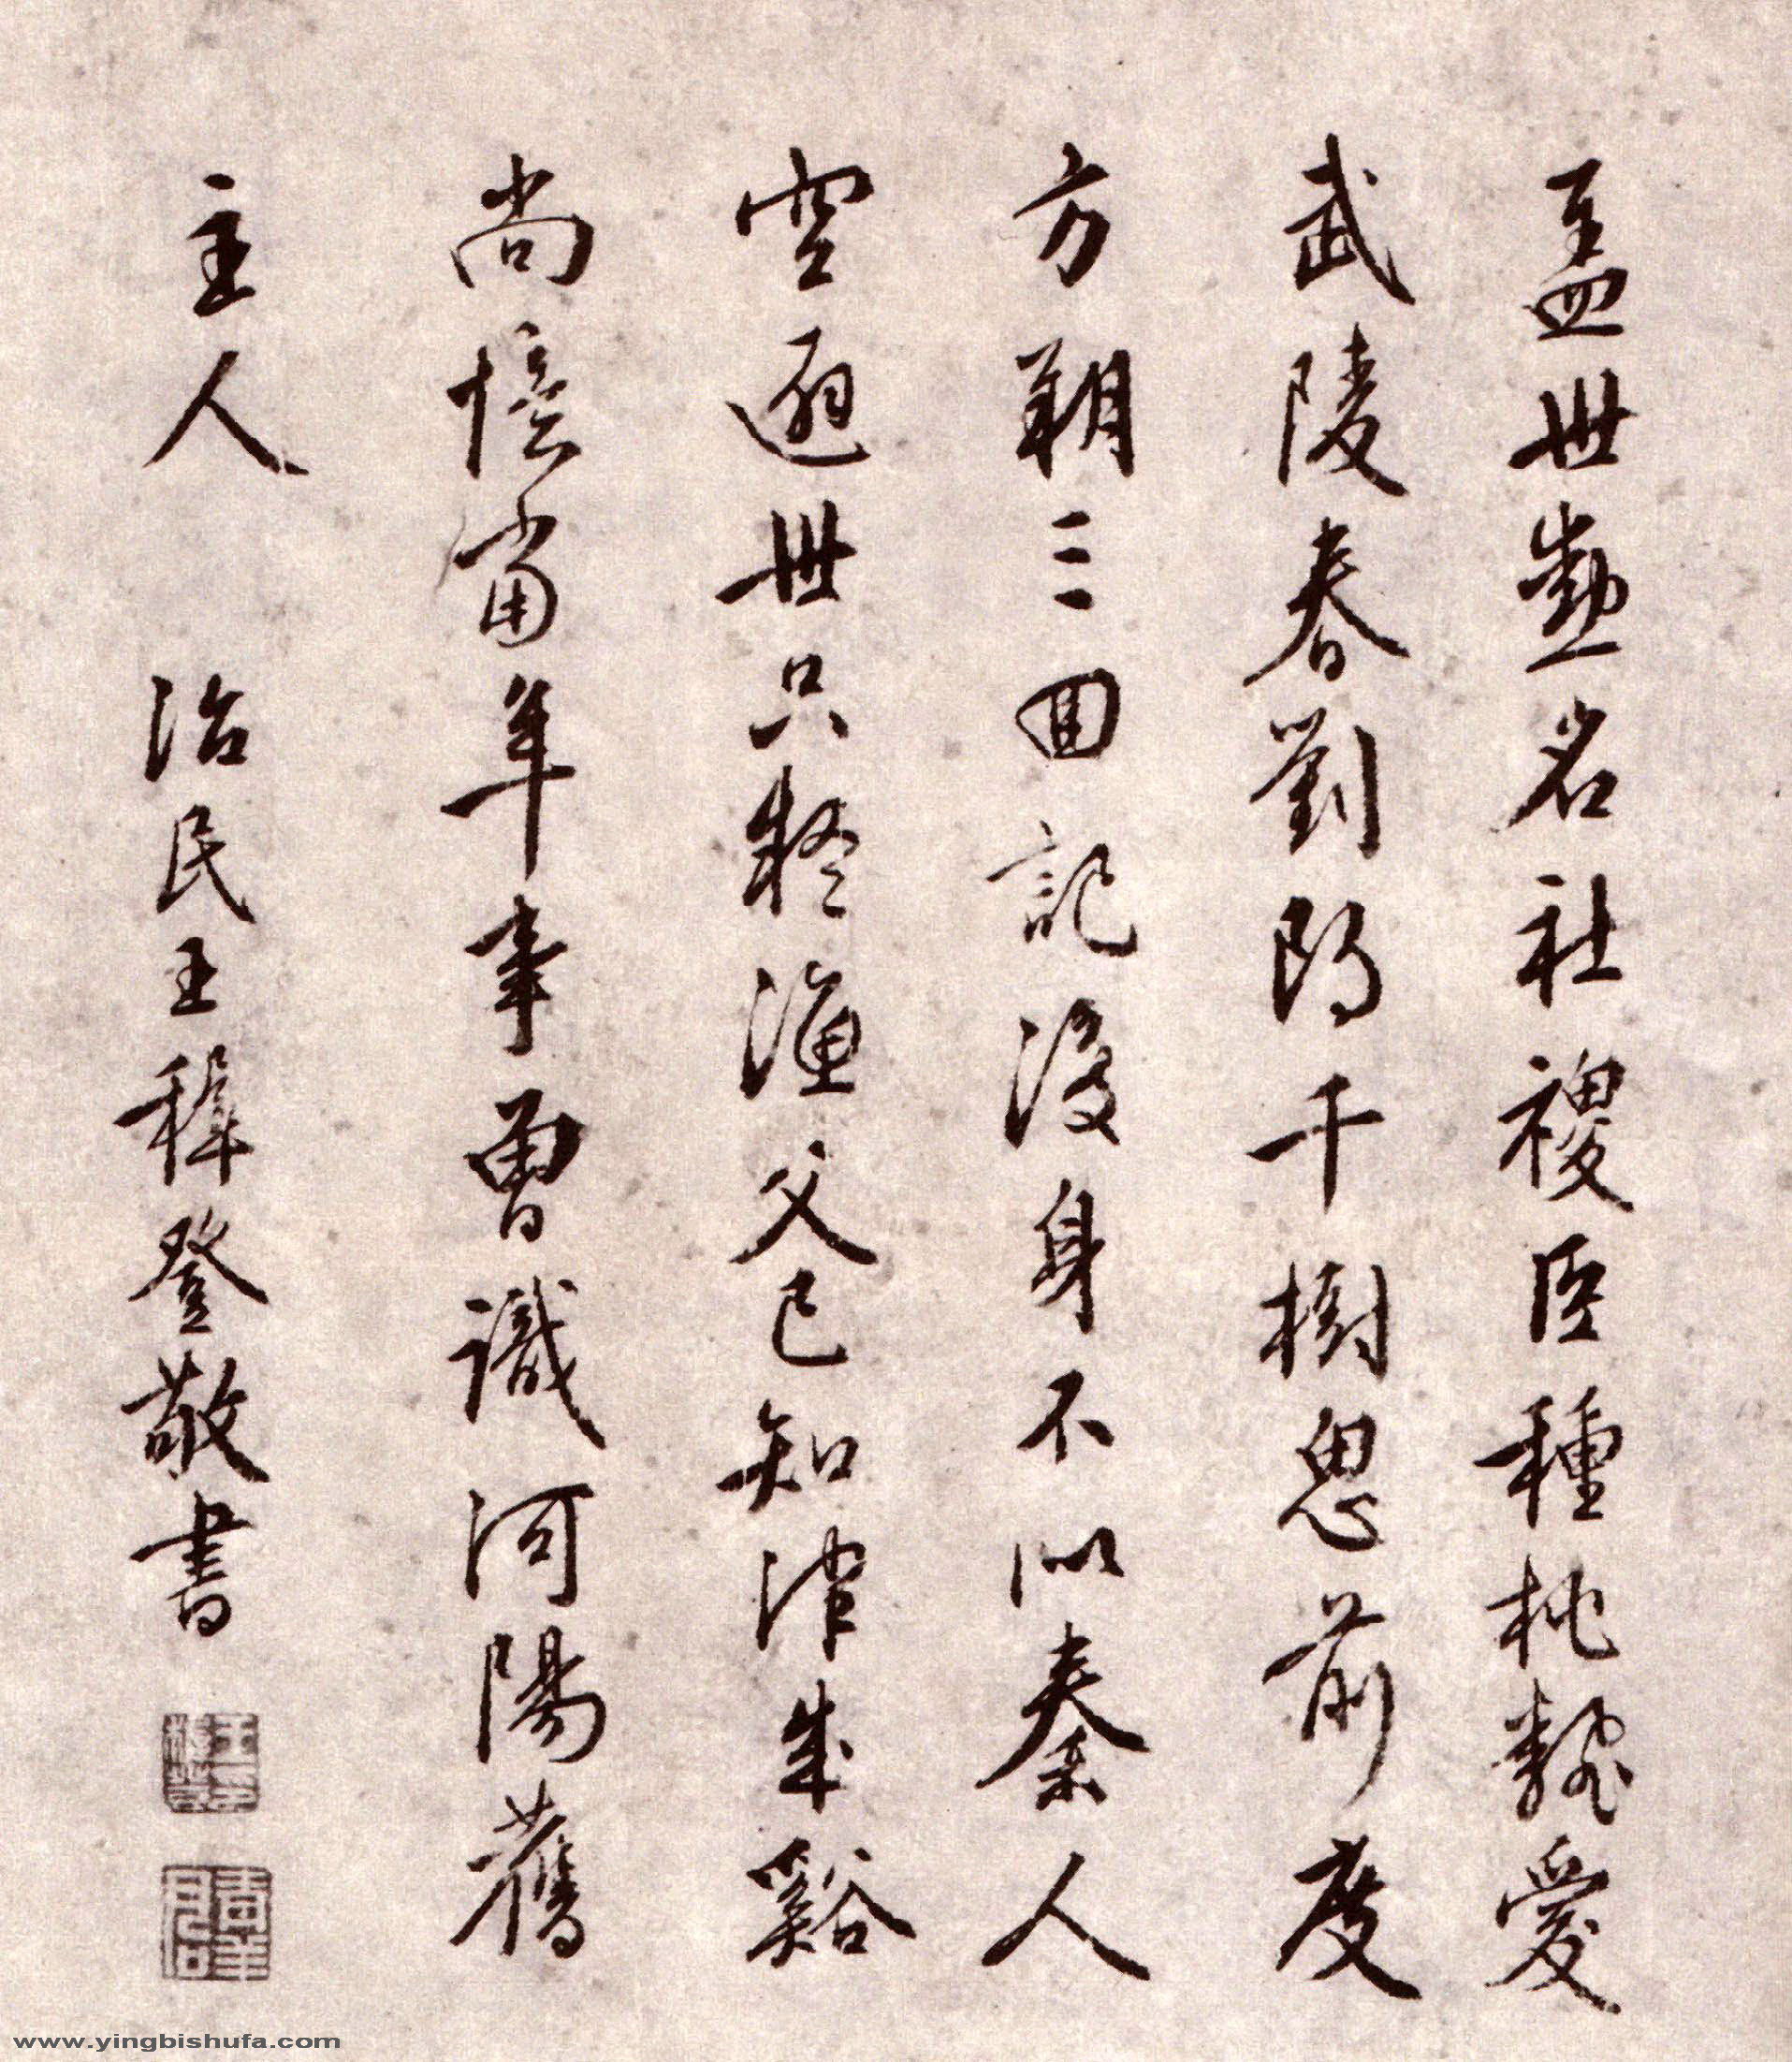 蓋世勳名社稷臣種桃翻愛
武陵春劉郎千樹思前度
方朔三回記後身不似秦人
空避世只疑漁父已知津成谿
尚憶當年事曾識河陽舊
主人　治民王穉登敬書
www.yingbishufa.com